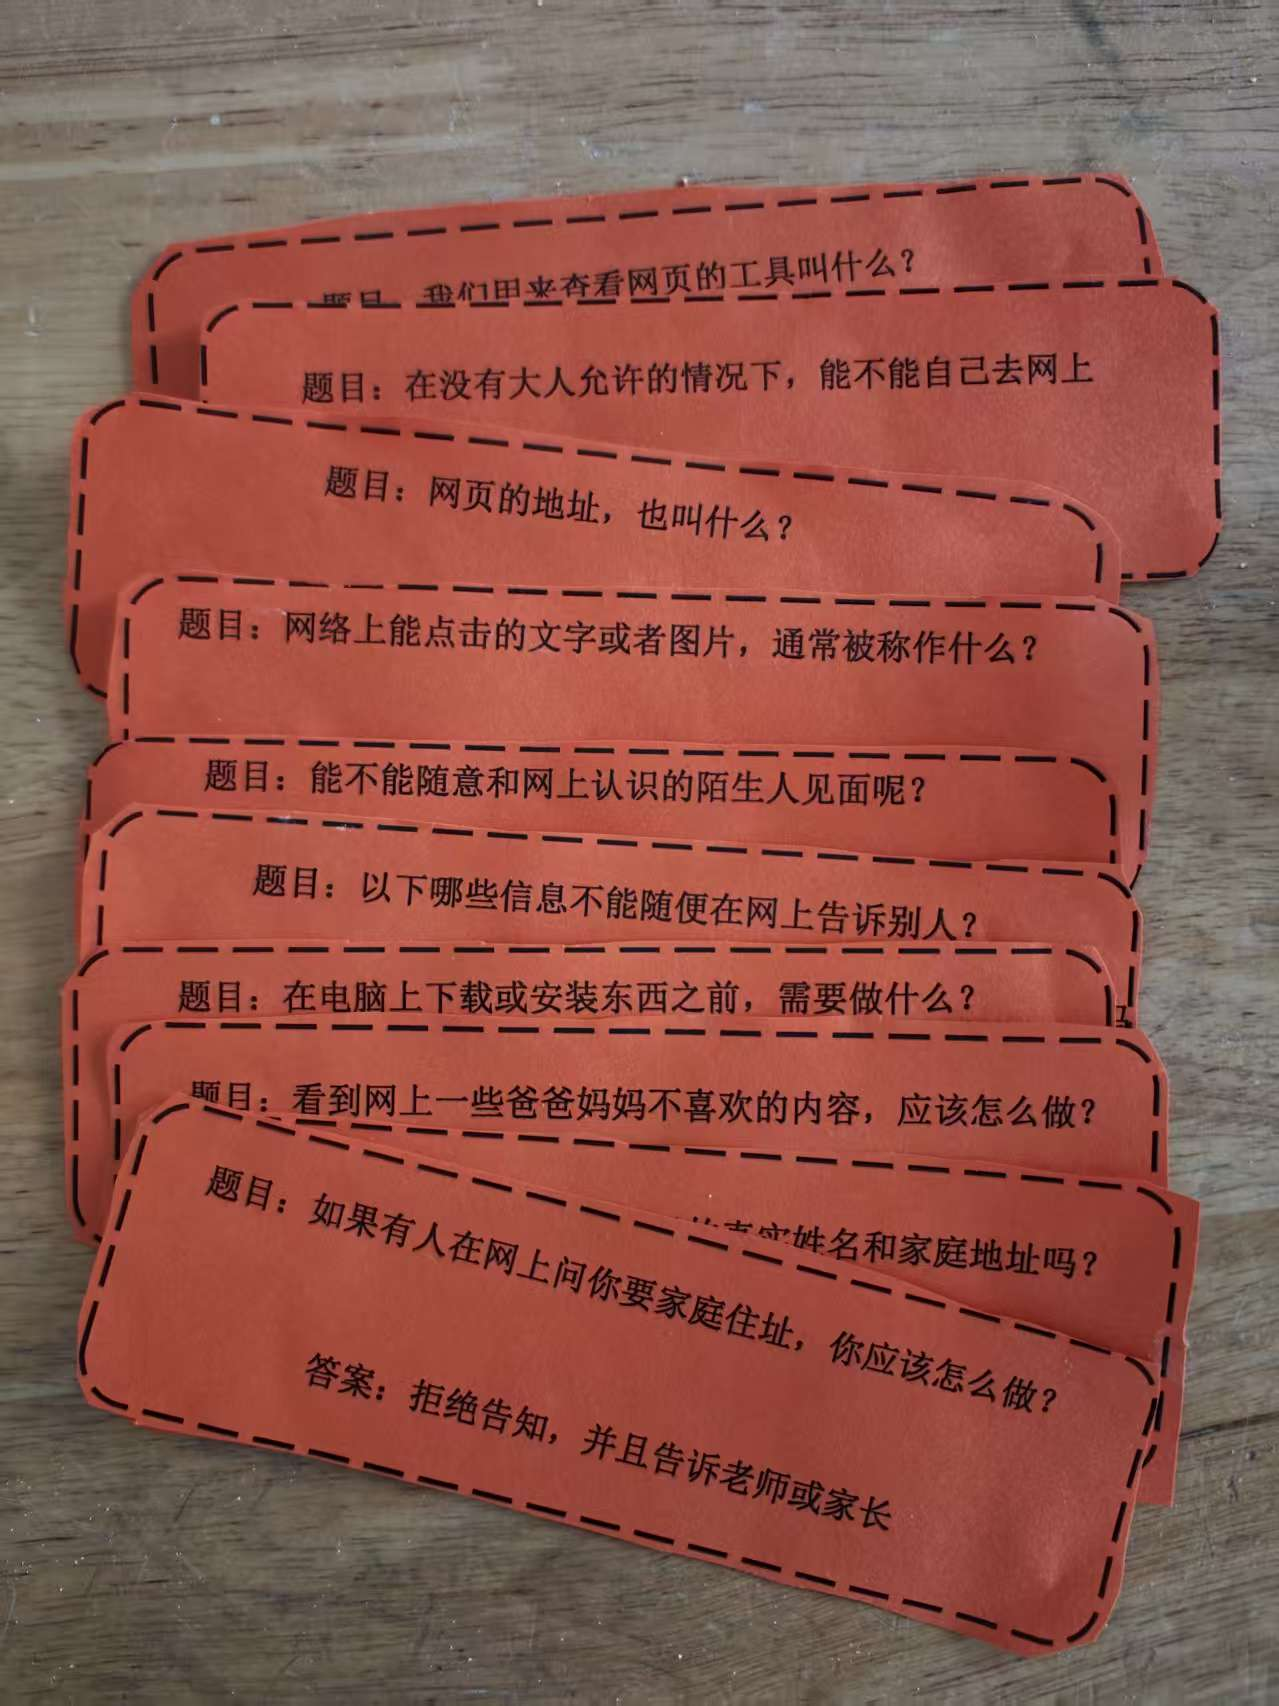 题目：我们用来查看网页的工具叫什么？
题目：在没有大人允许的情况下，能不能自己去网上
题目：网页的地址，也叫什么？
题目：网络上能点击的文字或者图片，通常被称作什么？
题目：能不能随意和网上认识的陌生人见面呢？
题目：以下哪些信息不能随便在网上告诉别人？
题目：在电脑上下载或安装东西之前，需要做什么？
题目：看到网上一些爸爸妈妈不喜欢的内容，应该怎么做？
真实姓名和家庭地址吗？
题目：如果有人在网上问你要家庭住址，你应该怎么做？
答案：拒绝告知，并且告诉老师或家长